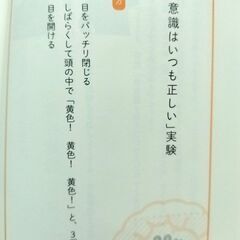 意識はいつも正しい」実験
方
目をパッチリ閉じる
しばらくして頭の中で「黄色!　黄色!　黄色!」と、3
目を開ける